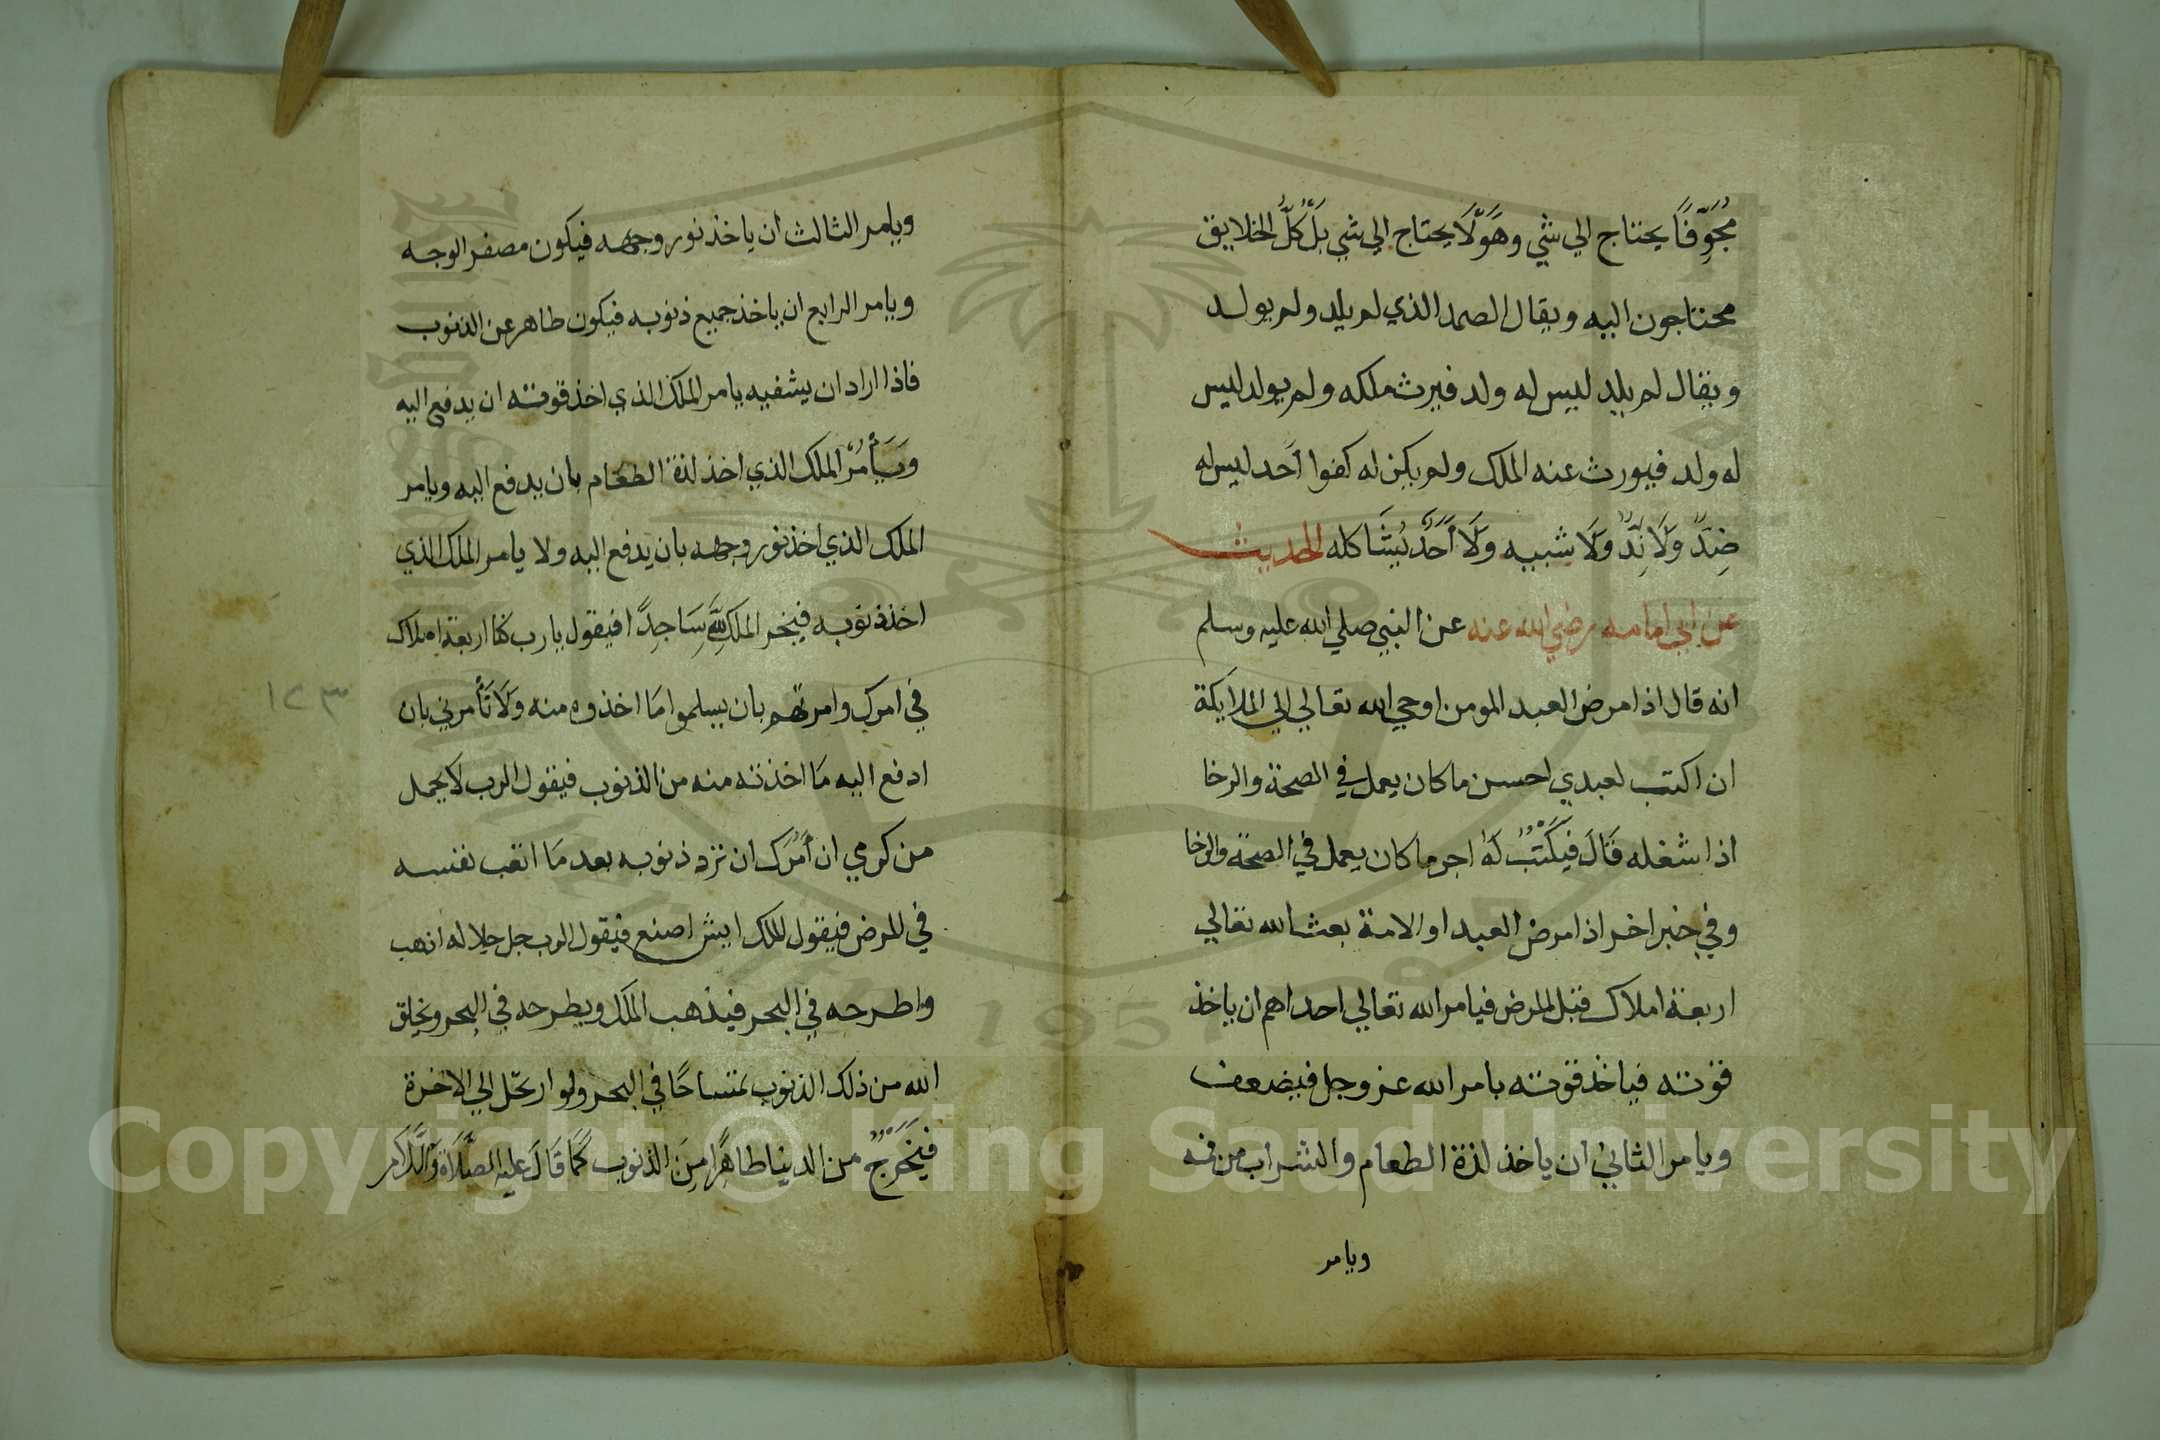 مُجَوَّفًا يحتاج الي شي وهَوَ لَا يحتاج الي شي بَلْ كلُّ الخلايق
محتاجون اليه ويقال الصمد الذي لم يلد ولم يولد
ويقال لم يلد ليس له ولد فيرث ملكه ولم يولد ليس
له ولد فيورث عنه الملك ولم يكن له كفوا احد ليس له
ضِدٌّ وَلَا نِدٌّ وَلَا شبيه وَلَا أَحَدٌ يُشَاكله الحديث
عن ابي امامه رضي الله عنه عن النبي صلي الله عليه وسلم
انه قال اذا مرض العبد المومن اوحي الله تعالي الي الملايكة
ان اكتب لعبدي احسن ما كان يعمل في الصحة والرخا
اذا شغله قَالَ فَيَكْتُبُ لَهُ اجر ما كان يعمل في الصحة والرخا
وفي خبر اخر اذا مرض العبد او الامة بعث الله تعالي
اربعة املاك قبل المرض فيامر الله تعالي احداهم ان ياخذ
قوته فياخذ قوته بامر الله عز وجل فيضعف
ويامر الثاني ان ياخذ لذة الطعام والشراب من فمه
ويامر
ويامر الثالث ان ياخذ نور وجهه فيكون مصفر الوجه
ويامر الرابع ان ياخذ جميع ذنوبه فيكون طاهر عن الذنوب
فاذا اراد ان يشفيه يامر الملك الذي اخذ قوته ان يدفع اليه
وَيَأْمُرُ الملك الذي اخذ لذة الطعام بان يدفع اليه ويامر
الملك الذي اخذ نور وجهه بان يدفع اليه ولا يامر الملك الذي
اخذ ذنوبه فيخر الملك لِلَّهِ سَاجِدًا فيقول يا رب كنا اربعة املاك
في امرك وامرتهم بان يسلموا مَا اخذوه منه وَلَا تَأْمرني بان
ادفع اليه مَا اخذته منه من الذنوب فيقول الرب لا يجمل
من كرمي ان أمُرَك ان ترد ذنوبه بعد مَا اتعب نفسه
في المرض فيقول الملك ايش اصنع فيقول الرب جل جلاله اذهب
واطرحه في البحر فيذهب الملك ويطرحه في البحر ويخلق
الله من ذلك الذنوب تمساحًا في البحر ولو ارتحل الي الاخرة
فَيَخْرُجُ من الدنيا طاهرًا مِنَ الذنوب كَمَا قَالَ عليه الصَّلَاة وَالسَّلَام
١٢٣
1957
Copyright © King Saud University